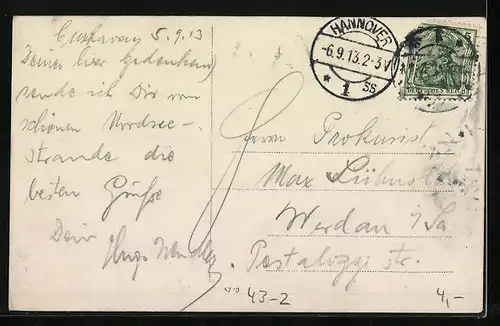 Cuxhaven 5.9.13
Deiner hier gedenkend
sende ich Dir vom
schönen Nordsee-
strande die
besten Grüße
Dein
Hugo
HANNOVER
-6.9.13.2-3V
* 1 SS
DEUTSCHES REICH
Herrn Prokurist
Max
Werdau i/Sa
Pestalozzi str.
43-2
4,-